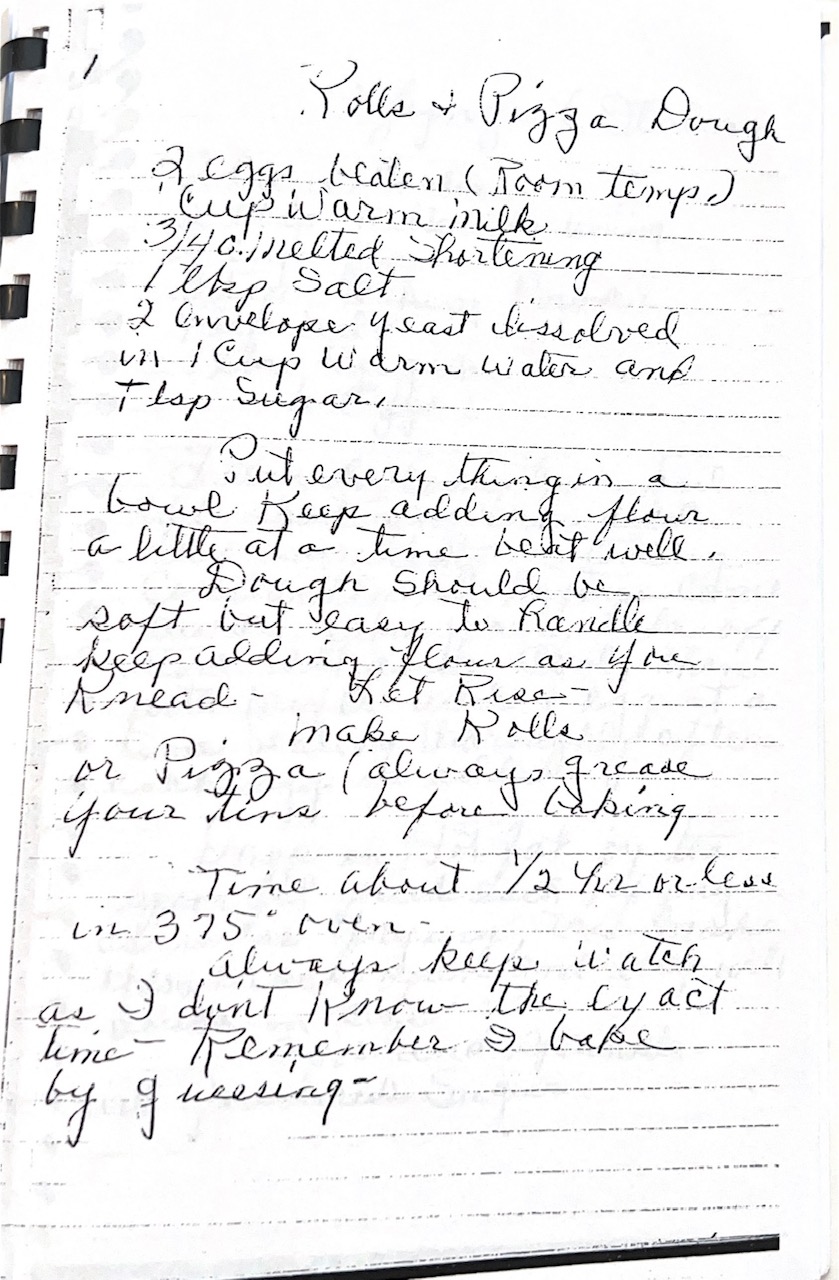 1
Rolls + Pizza Dough
2 eggs beaten (Room temp.)
1 Cup Warm milk
3/4 c. melted Shortening
1 tbsp Salt
2 envelope yeast dissolved
in 1 Cup Warm water and
1 tsp Sugar.
Put every thing in a
bowl Keep adding flour
a little at a time beat well.
Dough should be
soft but easy to handle
keep adding flour as you
Knead - Let Rise -
make Rolls
or Pizza (always grease
your tins before baking
Time about 1/2 hr or less
in 375° oven -
always keep watch
as I don't know the exact
time - Remember I bake
by guessing -